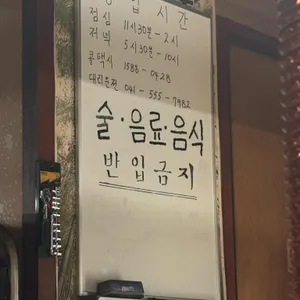 영업시간
점심 11시30분 - 2시
저녁 5시30분 - 10시
콜택시 1588 - 0428
대리운전 041 - 555 - 7982
술·음료·음식
반입금지